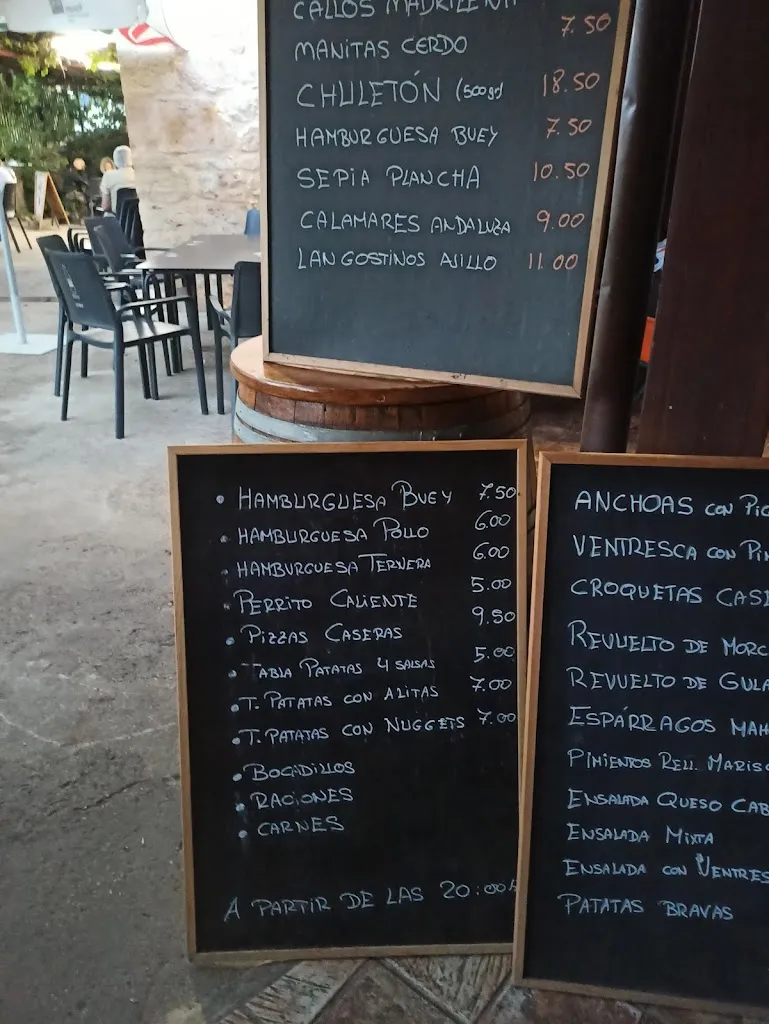 CALLOS MADRILEÑA
7.50
MANITAS CERDO
CHULETÓN (500gr) 18.50
HAMBURGUESA BUEY 7.50
SEPIA PLANCHA 10.50
CALAMARES ANDALUZA 9.00
LANGOSTINOS AJILLO 11.00
• HAMBURGUESA BUEY 7.50
• HAMBURGUESA POLLO 6.00
• HAMBURGUESA TERNERA 6.00
• PERRITO CALIENTE 5.00
• PIZZAS CASERAS 9.50
• TABLA PATATAS 4 SALSAS 5.00
• T. PATATAS CON ALITAS 7.00
• T. PATATAS CON NUGGETS 7.00
• BOCADILLOS
• RACIONES
• CARNES
A PARTIR DE LAS 20:00h
ANCHOAS CON
VENTRESCA CON
CROQUETAS
REVUELTO DE
REVUELTO DE
ESPÁRRAGOS
PIMIENTOS RELL.
ENSALADA QUESO
ENSALADA MIXTA
ENSALADA CON
PATATAS BRAVAS